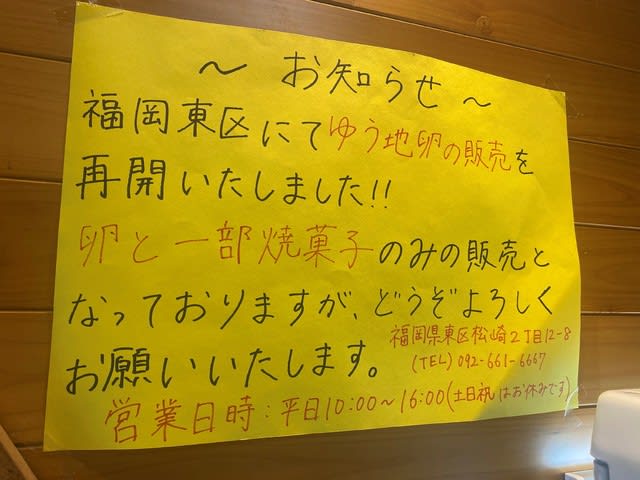 ～ お知らせ ～
福岡東区にてゆう地卵の販売を
再開いたしました!!
卵と一部焼菓子のみの販売と
なっておりますが、どうぞよろしく
お願いいたします。
福岡県東区松崎2丁目12-8
(TEL) 092-661-6667
営業日時:平日10:00～16:00(土日祝はお休みです)